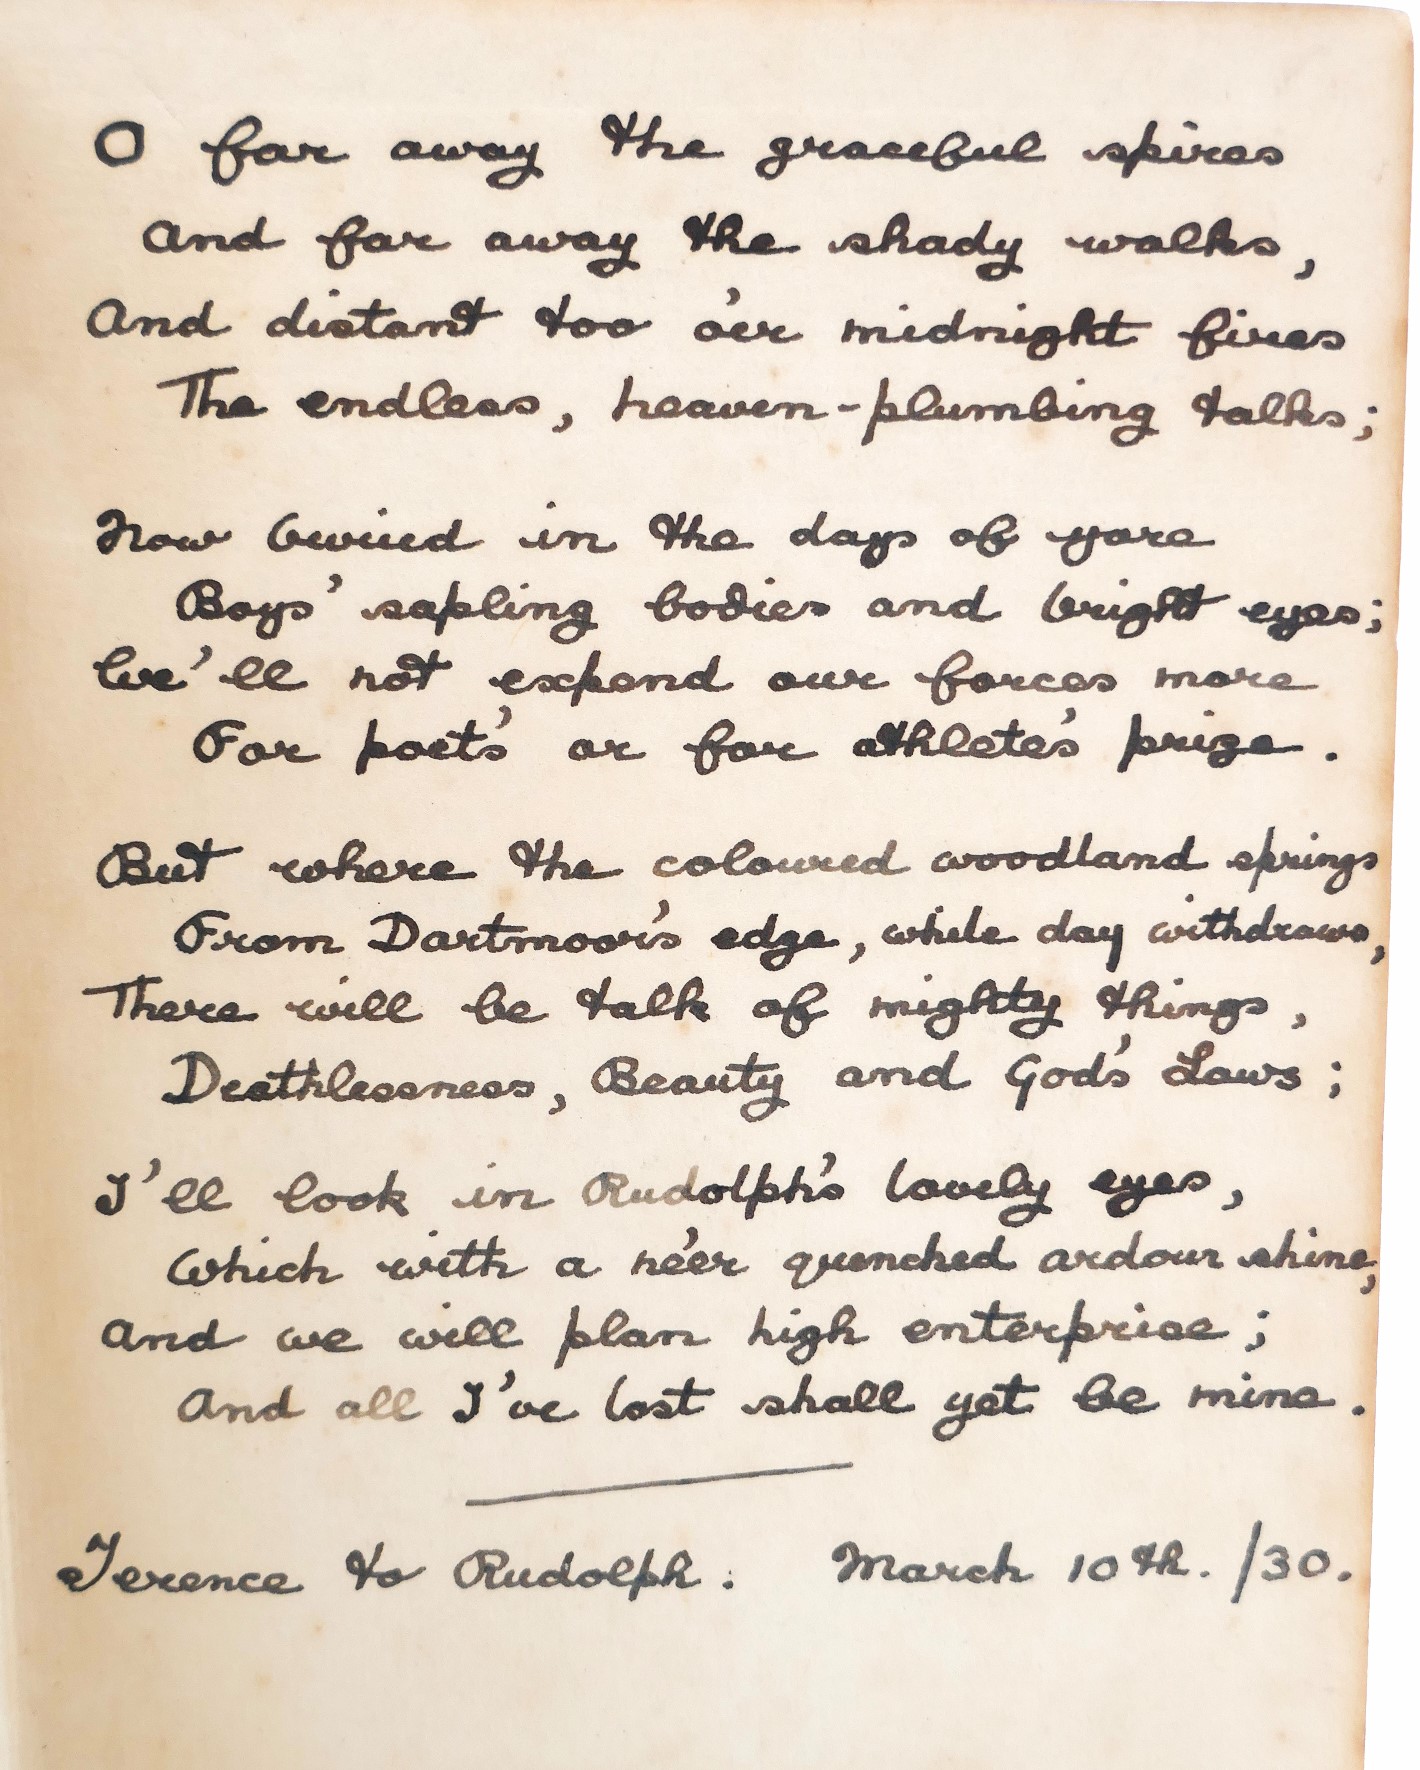 O far away the graceful spires
And far away the shady walks,
And distant too o'er midnight fires
The endless, heaven-plumbing talks;
Now buried in the days of yore
Boys' sapling bodies and bright eyes;
We'll not expend our forces more
For poet's or for athlete's prize.
But where the coloured woodland springs
From Dartmoor's edge, while day withdraws,
There will be talk of mighty things,
Deathlessness, Beauty and God's Laws;
I'll look in Rudolph's lovely eyes,
Which with a ne'er quenched ardour shine,
And we will plan high enterprise;
And all I've lost shall yet be mine.
Terence to Rudolph. March 10th. /30.